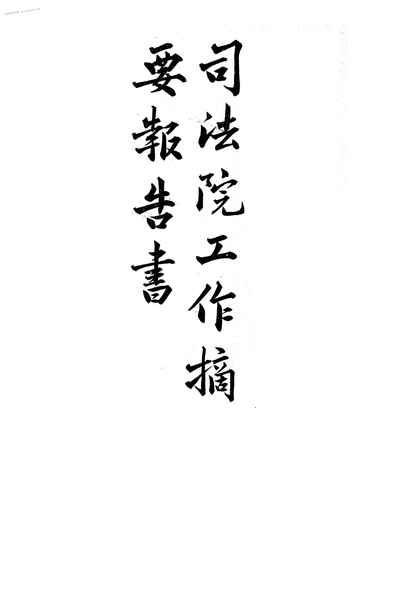 司法院工作摘
要報告書